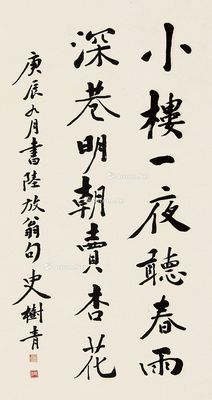 小樓一夜聽春雨
深巷明朝賣杏花
庚辰九月書陸放翁句 史樹青